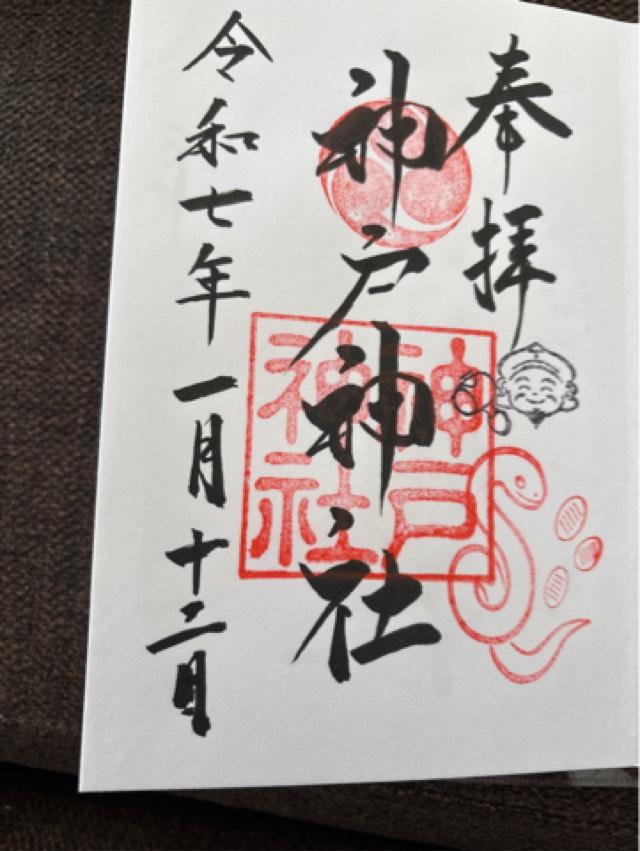 奉拝
神戸神社
神戸神社
令和七年一月十二日